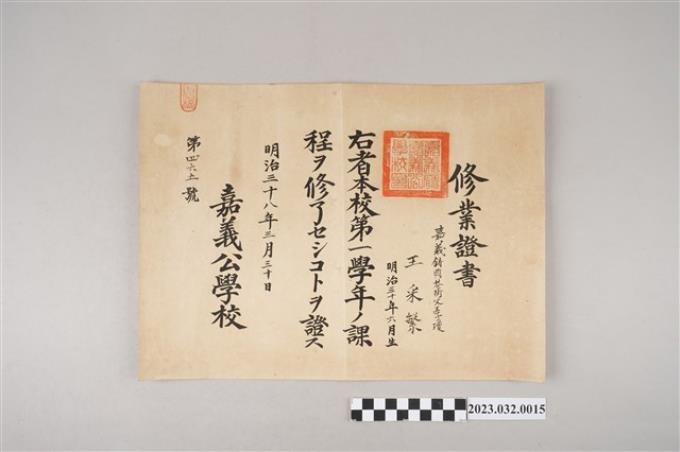 修業證書
王采繁
明治三十年六月生
右者本校第一學年ノ課
程ヲ修了セシコトヲ證ス
明治三十八年三月三十日
嘉義公學校
第四六五號
2023.032.0015